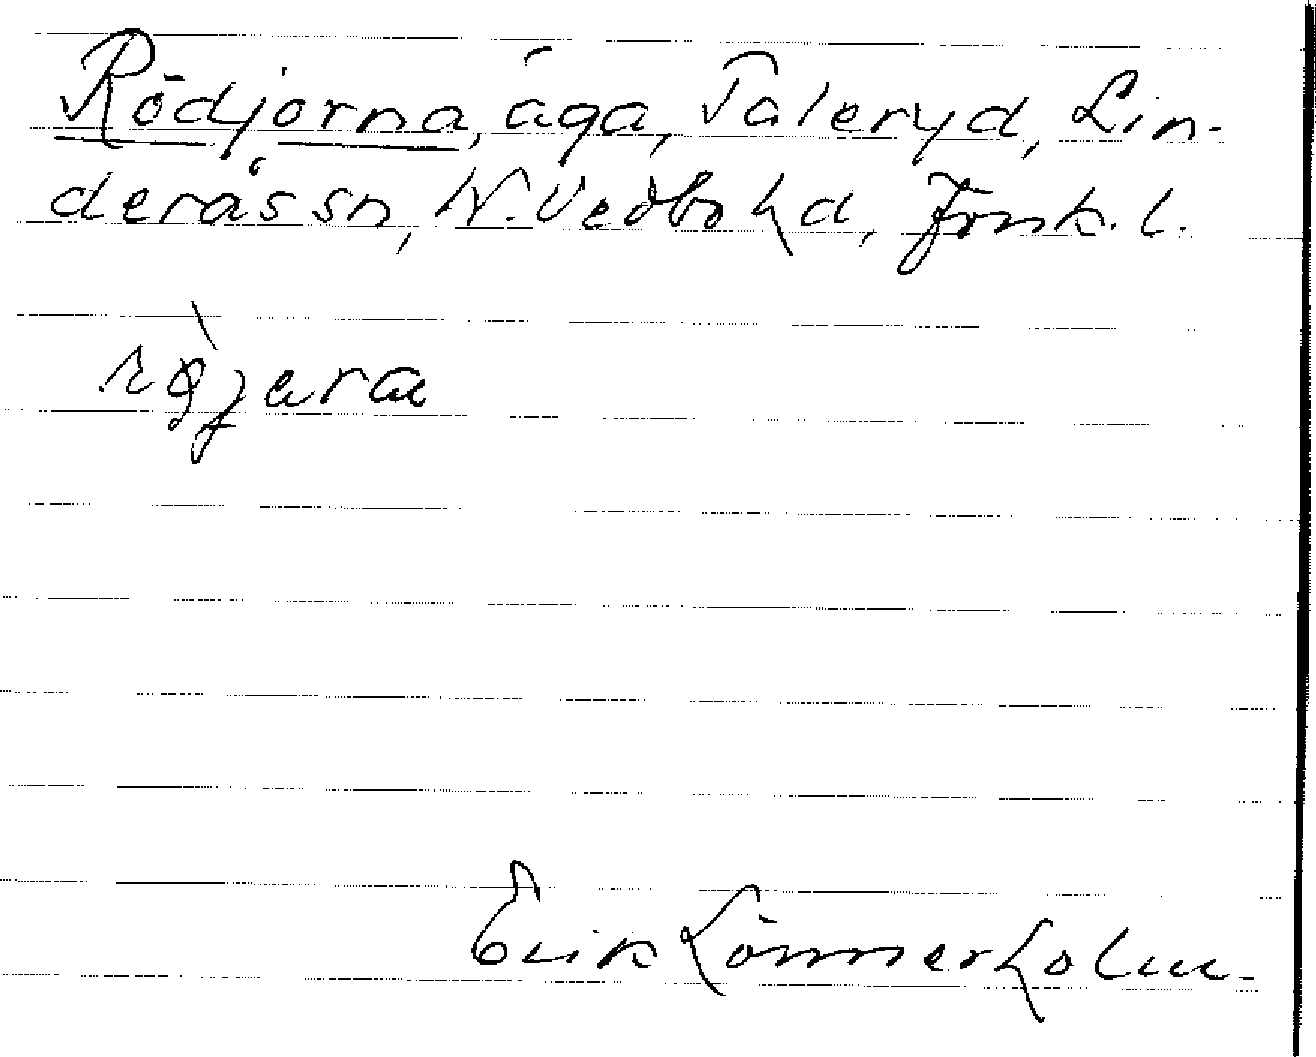 Rödjorna, äga, Taleryd, Lin-
deräs sn, N. Vedbo hd, Jönk. l.
rø̨̀jara
Erik Lönnerholm.